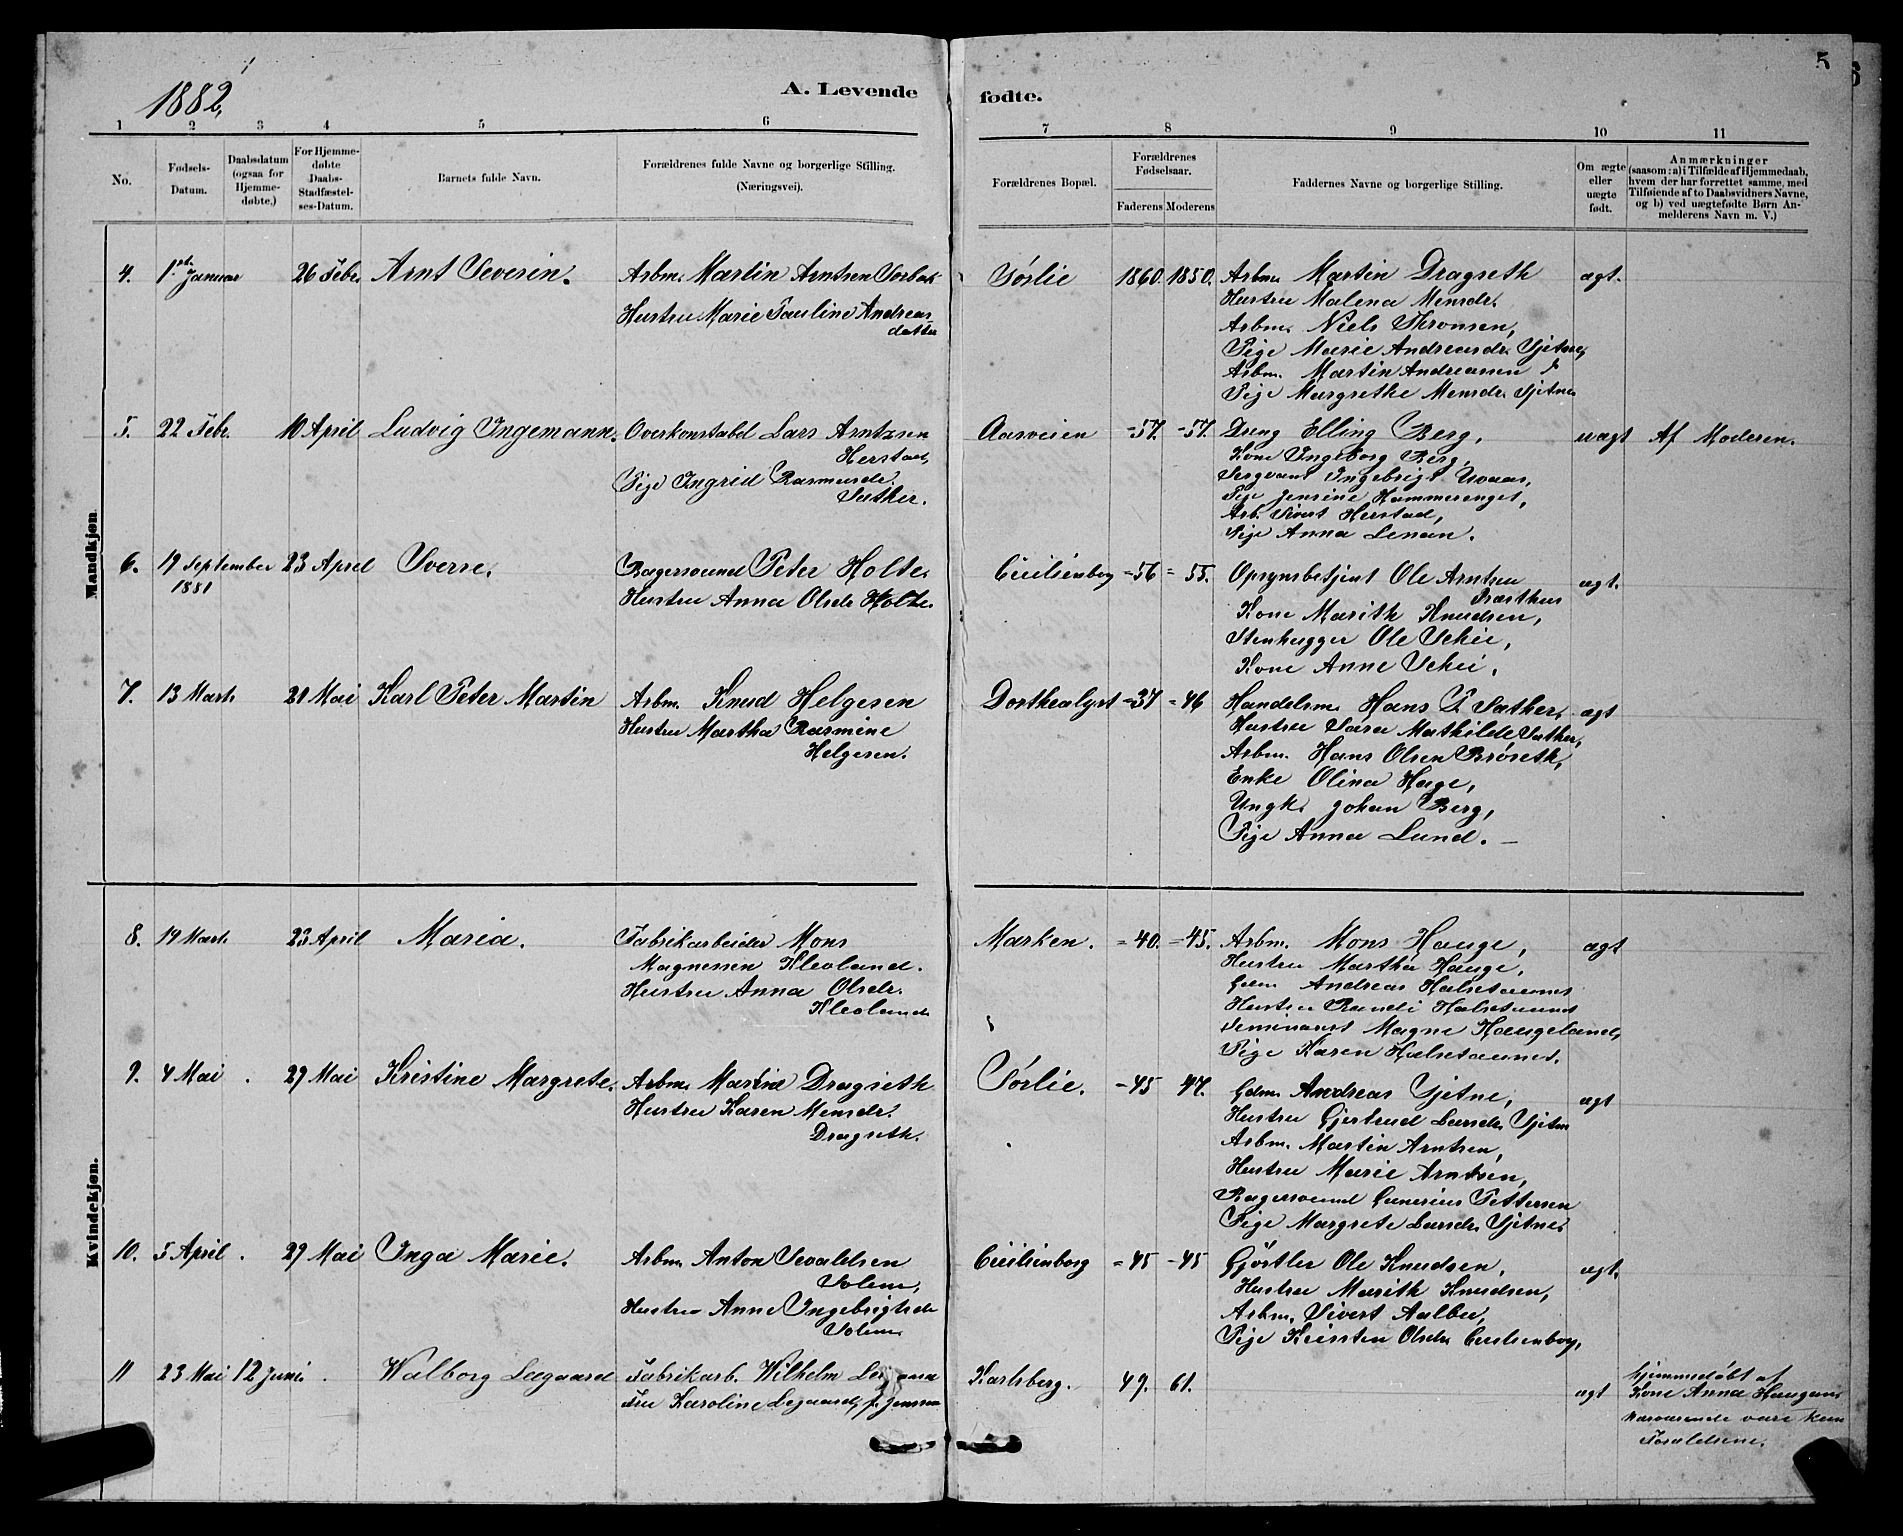 1882,
A. Levende
fødte.
5
6
1 2 3 4 5 6 7 8 9 10 11
No.
Fødsels-
Datum.
Daabsdatum
(ogsaa for
Hjemme-
døbte.)
For Hjemme-
døbte
Daabs-
Stadfæstel-
ses-Datum.
Barnets fulde Navn.
Forældrenes fulde Navne og borgerlige Stilling.
(Næringsvei).
Forældrenes Bopæl.
Forældrenes
Fødselsaar.
Faderens Moderens
Faddernes Navne og borgerlige Stilling.
Om ægte
eller
uægte
født.
Anmærkninger
(saasom: a) i Tilfælde af Hjemmedaab,
hvem der har forrettet samme, med
Tilføiende af to Daabsvidners Navne,
og b) ved uægtefødte Børn An-
melderens Navn m. V.)
Mandkjøn
4. 1ste Januar 26 Febr. Arnt Severin.
Arbm. Martin Arntsen
Hustru Marie Pauline Andreas-
datter
Sørlie 1860. 1850.
Arbm. Martin Dragseth
Hustru Malena Monsdr.
Arbm. Niels Thronsen,
Pige Marie Andreasdr. Sjetne,
Arbm. Martin Andreasen
Pige Margrethe Monsdr. Sjetne
ægt.
5. 22 Febr. 10 April Ludvig Ingemann.
Overkonstabel Lars Arntzen
Herstad,
Pige Ingrid Rasmusdr.
Sæther.
Aasveien -57. -57.
Dreng Elling Berg,
Kone Ingeborg Berg,
Sergeant Ingebrigt
Pige Jensine Hammerenget,
Arb. Sivert Herstad,
Pige Anna Lenan.
uægt Af Moderen.
6. 19 September 23 April Sverre.
1881
Bagersvend Peter Holte.
Hustru Anna Olsdr. Holte.
Cecilienborg -56 = 55.
Opsynsbetjent Ole Arntsen
Præsthus
Kone Marith Knudsen,
Stenhugger Ole Schei,
Kone Anne Schei.
ægt.
7. 13 Marts 21 Mai Karl Peter Martin
Arbm. Knud Helgesen
Hustru Martha Rasmine
Helgesen.
Dorthealyst -37 = 46
Handelsm. Hans P. Sæther,
Hustru Sara Mathilde Sæther,
Arbm. Hans Olsen Brøseth,
Enke Olina Hage,
Ungk. Johan Berg,
Pige Anna Lund. —
ægt
Kvindekjøn.
8. 19 Marts 23 April Maria.
Fabrikarbeider Mons
Magnessen Kleoland.
Hustru Anna Olsdr.
Kleoland
Marken. = 40. = 45.
Arbm. Mons Hauge,
Hustru Martha Hauge,
Gdm. Andreas Halsetaunet
Hustru Randi Halsetaunet
Seminarist Magne Haugeland,
Pige Karen Halsetaunet.
ægt
9. 4 Mai . 29 Mai Kristine Margrete.
Arbm. Martin Dragseth
Hustru Karen Monsdr.
Dragseth.
Sørlie. -45 47.
Gdm. Andreas Sjetne,
Hustru Gjertrud Larsdr. Sjetne
Arbm. Martin Arntsen,
Hustru Marie Arntsen,
Bagersvend Gunerius Pettersen
Pige Margrete Larsdr. Sjetne.
ægt
10. 5 April . 29 Mai Inga Marie.
Arbm. Anton Sevaldsen
Solem,
Hustru Anne Ingebrigtsdr.
Solem.
Cecilienborg = 45 -45
Gjørtler Ole Knudsen,
Hustru Marith Knudsen,
Arbm. Sivert Aalbu,
Pige Kirsten Olsdr. Cecilienborg,
ægt.
11 23 Mai 12 Juni . Walborg Leegaard
Fabrikarb. Wilhelm
Fru Karoline Legaard, f. Jenssen
Karlsberg. 49. 61.
ægt
Hjemmedøbt af
Kone Anna Haugan
Nærværende vare kun
Forældrene.